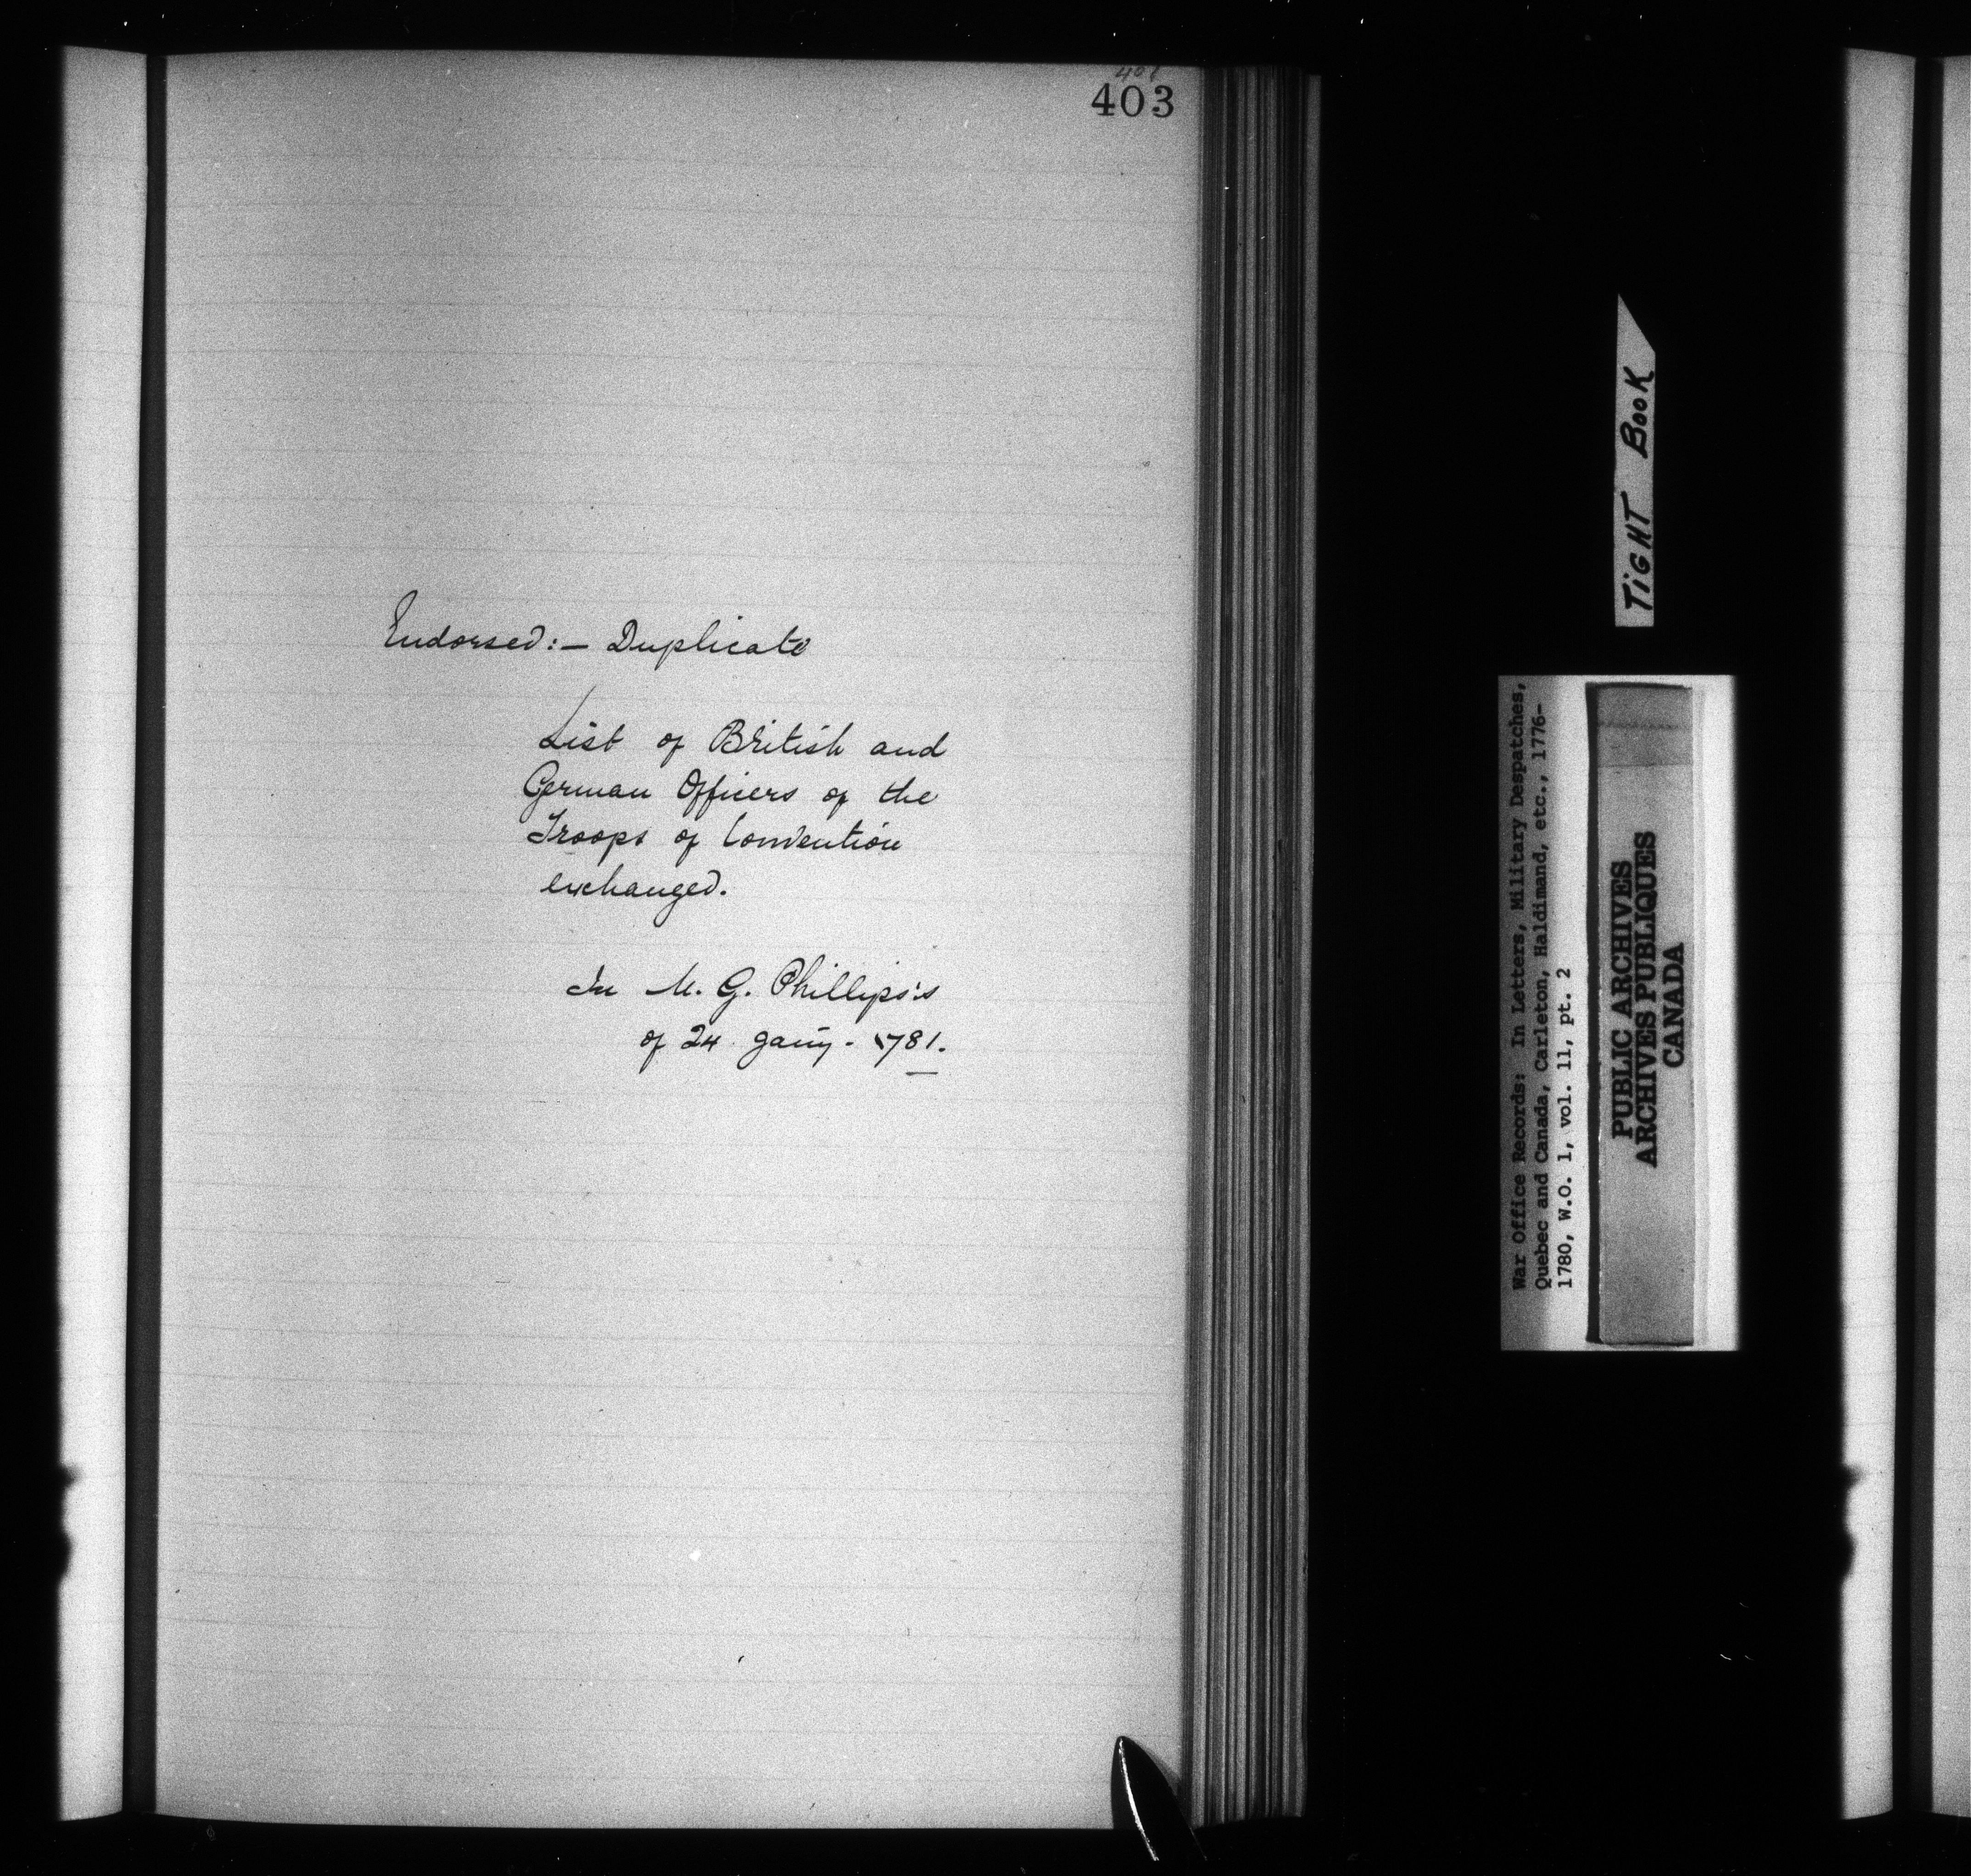 401
403
Endorsed:— Duplicate
List of British and
German Officers of the
Troops of Convention
exchanged.
In M. G. Phillips's
of 24 Jany. 1781.
TiGHT BooK
War Office Records: In Letters, Military Despatches,
Quebec and Canada, Carleton, Haldimand, etc., 1776-
1780, W.O. 1, vol. 11, pt. 2
PUBLIC ARCHIVES
ARCHIVES PUBLIQUES
CANADA